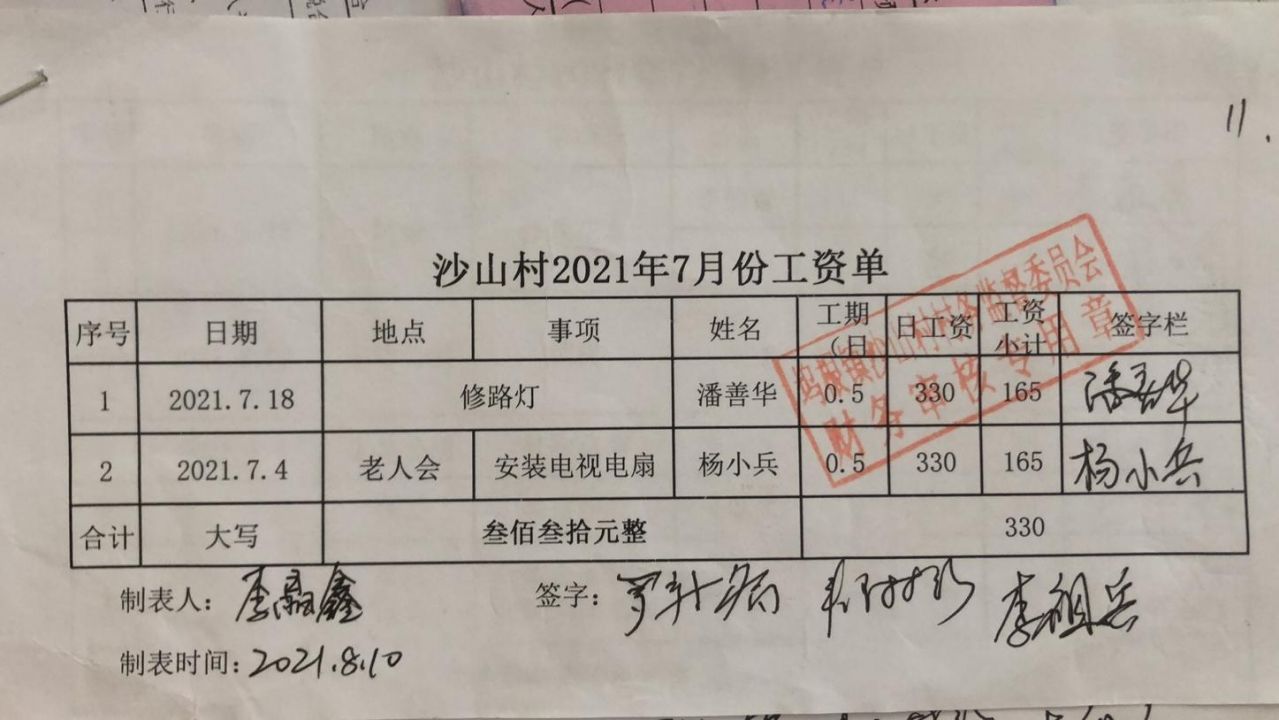 11.
沙山村2021年7月份工资单
序号 日期 地点 事项 姓名 工期（日 日工资 工资小计 签字栏
1 2021.7.18 修路灯 潘善华 0.5 330 165 潘善华
2 2021.7.4 老人会 安装电视电扇 杨小兵 0.5 330 165 杨小兵
合计 大写 叁佰叁拾元整 330
制表人: 李融鑫 签字: 李祖兵
制表时间: 2021.8.10
沙山村村务监督委员会
财务审核专用章